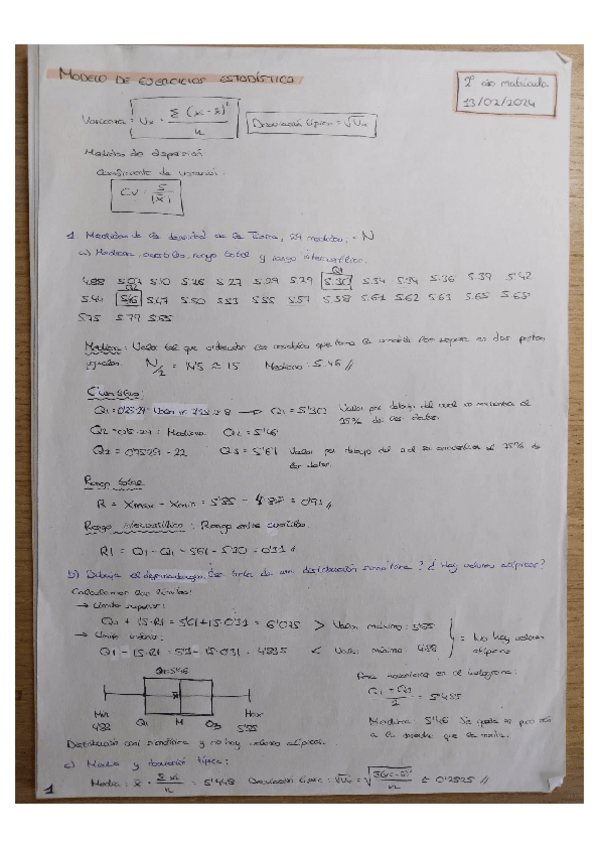 MODELO DE EJERCICIOS ESTADÍSTICA
13/02/2024
Varianza = Vx = Σ (xi - x̄)² / n
Desviación típica = √Vx
Medidas de dispersión:
Coeficiente de variación:
CV = S / |x̄|
1. Medidas de la densidad de la Tierra, 29 medidas. = N
a) Mediana, cuartiles, rango total y rango intercuartílico.
Q1
4.88 5.07 5.10 5.26 5.27 5.29 5.29 5.30 5.34 5.34 5.36 5.39 5.42
5.44 5.46 5.47 5.50 5.53 5.55 5.57 5.58 5.61 5.62 5.63 5.65 5.68
5.75 5.79 5.85
Mediana: Valor tal que ordenados las medidas que toma la variable las separa en dos partes
iguales. N/2 = 14'5 ≈ 15 Mediana: 5.46 //
Cuartiles:
Q1 = 0'25·29 = 7'25 ≈ 8 → Q1 = 5'30 Valor por debajo del cual se encuentra el
25% de los datos.
Q2 = 0'5·29 = Mediana Q2 = 5'46
Q3 = 0'75·29 = 22 Q3 = 5'61 Valor por debajo del cual se encuentra el 75% de
los datos.
Rango total
R = Xmax - Xmin = 5'85 - 4'88 = 0'97 //
Rango intercuartílico: Rango entre cuartiles.
RI = Q3 - Q1 = 5'61 - 5'30 = 0'31 //
b) Dibuja el diagrama de caja. ¿Se trata de una distribución simétrica? ¿Hay valores atípicos?
Calculamos los límites:
→ Límite superior:
Q3 + 1'5·RI = 5'61 + 1'5·0'31 = 6'075 > Valor máximo: 5'85
→ Límite inferior:
Q1 - 1'5·RI = 5'3 - 1'5·0'31 = 4'835 < Valor mínimo: 4'88
No hay valores
atípicos
Q2 = 5'46
Min
4.88
Q1 M Q3
Max
5.85
Q1 + Q3 / 2 = 5'455
Mediana 5'46
Distribución casi simétrica y no hay valores atípicos.
c) Media y desviación típica:
Media: x̄ = Σ xi / n = 5'448 Desviación típica:
1